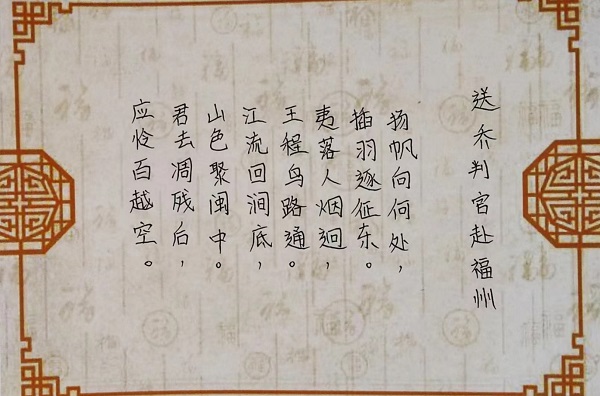 送乔判官赴福州
扬帆向何处，
插羽逐征东。
夷落人烟迥，
王程鸟路通。
江流回涧底，
山色聚闽中。
君去凋残后，
应怜百越空。